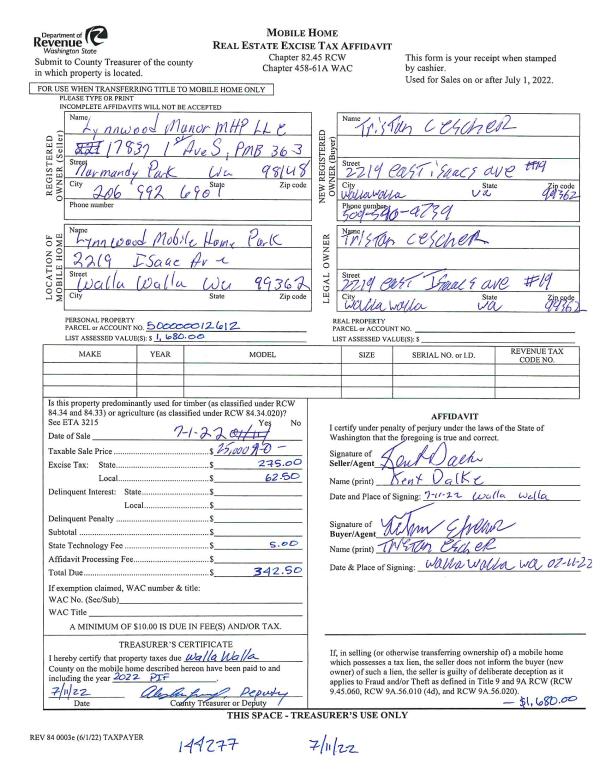 Department of
Revenue
Washington State
Submit to County Treasurer of the county
in which property is located.
MOBILE HOME
REAL ESTATE EXCISE TAX AFFIDAVIT
Chapter 82.45 RCW
Chapter 458-61A WAC
This form is your receipt when stamped
by cashier.
Used for Sales on or after July 1, 2022.
FOR USE WHEN TRANSFERRING TITLE TO MOBILE HOME ONLY
PLEASE TYPE OR PRINT
INCOMPLETE AFFIDAVITS WILL NOT BE ACCEPTED
REGISTERED
OWNER (Seller)
Name
Lynnwood Manor MHP LLC
17837 1st Ave S, PMB 363
Street
Normandy Park Wa 98148
City State Zip code
206 992 6901
Phone number
NEW REGISTERED
OWNER (Buyer)
Name
Tristan
Street
2219 east isaacs ave #19
City State Zip code
wallawalla wa 99362
Phone number
509-540-9739
LOCATION OF
MOBILE HOME
Name
Lynnwood Mobile Home Park
2219 Isaac Ave
Street
Walla Walla Wa 99362
City State Zip code
LEGAL OWNER
Name
Tristan
Street
2219 east Isaacs ave #19
City State Zip code
walla walla wa 99362
PERSONAL PROPERTY
PARCEL or ACCOUNT NO. 500000012612
LIST ASSESSED VALUE(S): $ 1,680.00
REAL PROPERTY
PARCEL or ACCOUNT NO.
LIST ASSESSED VALUE(S): $
MAKE YEAR MODEL SIZE SERIAL NO. or I.D. REVENUE TAX CODE NO.
Is this property predominantly used for timber (as classified under RCW
84.34 and 84.33) or agriculture (as classified under RCW 84.34.020)?
See ETA 3215 Yes No
Date of Sale 7-1-22
Taxable Sale Price $ 25,000
Excise Tax: State $ 275.00
Local $ 62.50
Delinquent Interest: State $
Local $
Delinquent Penalty $
Subtotal $
State Technology Fee $ 5.00
Affidavit Processing Fee $
Total Due $ 342.50
If exemption claimed, WAC number & title:
WAC No. (Sec/Sub)
WAC Title
A MINIMUM OF $10.00 IS DUE IN FEE(S) AND/OR TAX.
AFFIDAVIT
I certify under penalty of perjury under the laws of the State of
Washington that the foregoing is true and correct.
Signature of
Seller/Agent Kent Dalke
Name (print) Kent Dalke
Date and Place of Signing: 7-11-22 walla walla
Signature of
Buyer/Agent
Name (print) Tristan
Date & Place of Signing: walla walla wa 02-11-22
TREASURER'S CERTIFICATE
I hereby certify that property taxes due Walla Walla
County on the mobile home described hereon have been paid to and
including the year 2022 PIF
7/11/22 Deputy
Date County Treasurer or Deputy
If, in selling (or otherwise transferring ownership of) a mobile home
which possesses a tax lien, the seller does not inform the buyer (new
owner) of such a lien, the seller is guilty of deliberate deception as it
applies to Fraud and/or Theft as defined in Title 9 and 9A RCW (RCW
9.45.060, RCW 9A.56.010 (4d), and RCW 9A.56.020).
— $1,680.00
THIS SPACE - TREASURER'S USE ONLY
REV 84 0003e (6/1/22) TAXPAYER
144277 7/11/22